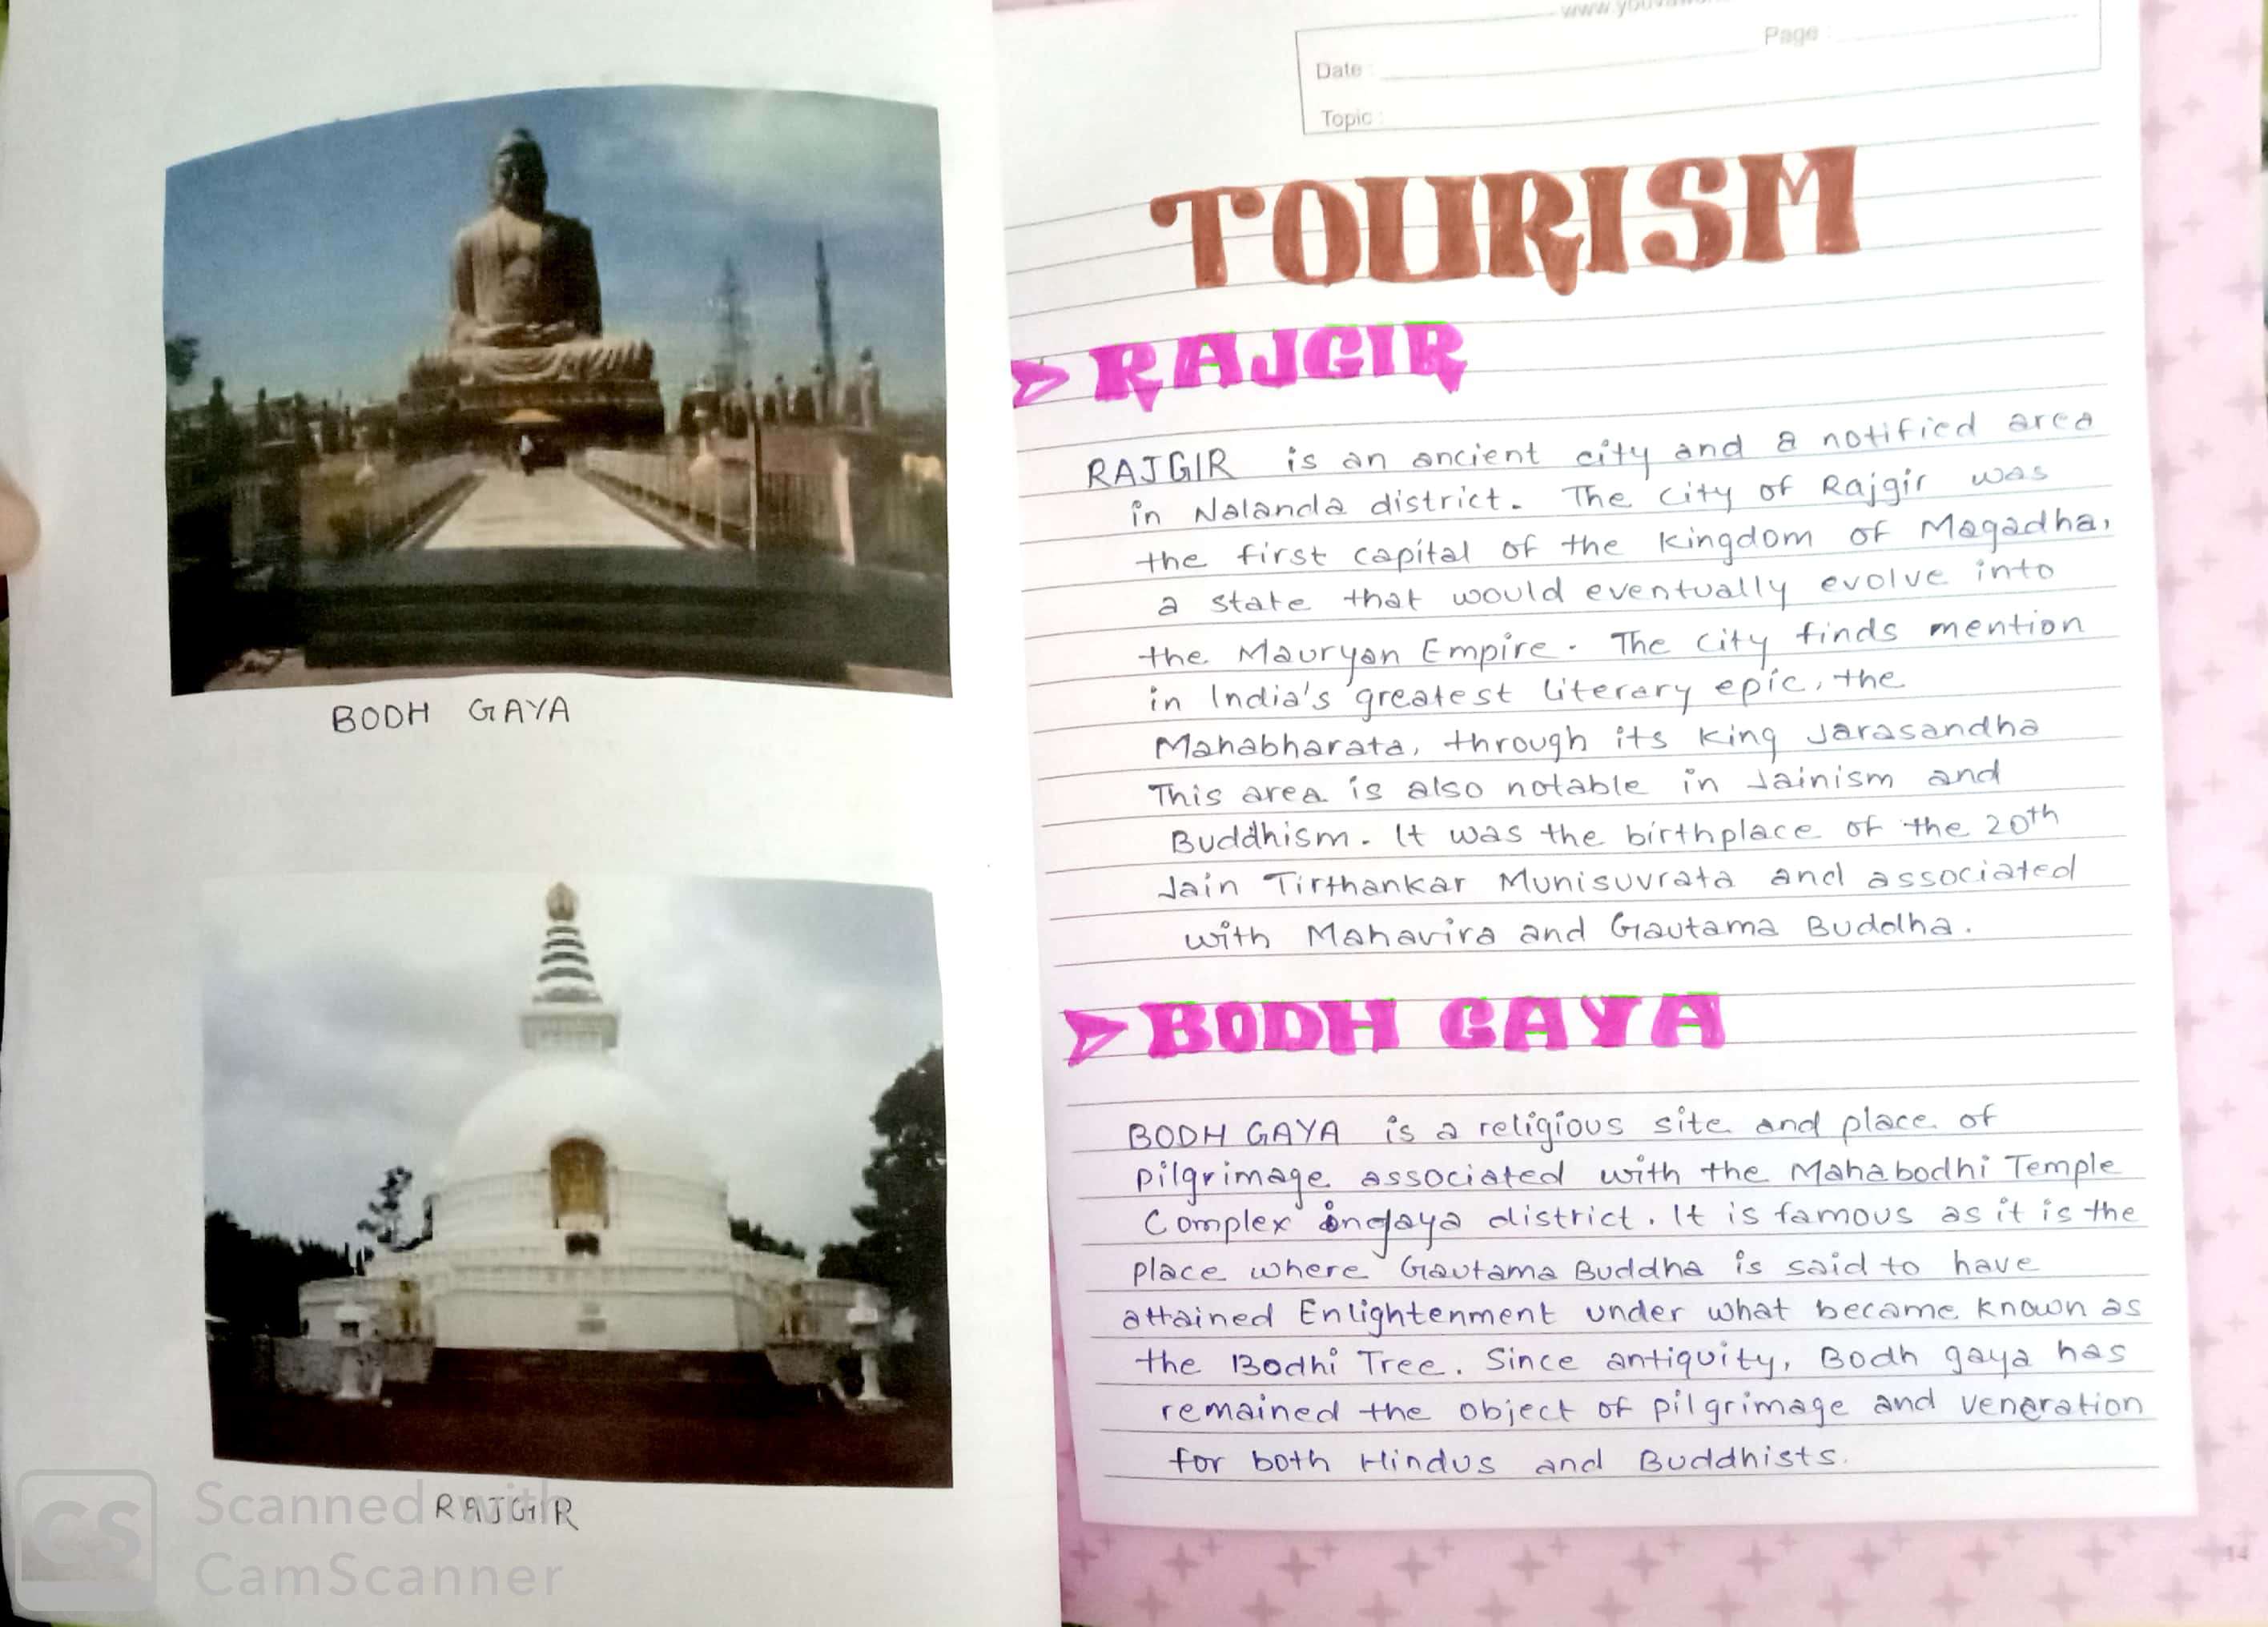 BODH GAYA
RAJGIR
Scanned with
CamScanner
CS
Page :
Date :
Topic :
TOURISM
RAJGIR
RAJGIR is an ancient city and a notified area
in Nalanda district. The city of Rajgir was
the first capital of the kingdom of Magadha,
a state that would eventually evolve into
the Mauryan Empire. The city finds mention
in India's greatest literary epic, the
Mahabharata, through its king Jarasandha
This area is also notable in Jainism and
Buddhism. It was the birthplace of the 20th
Jain Tirthankar Munisuvrata and associated
with Mahavira and Gautama Buddha.
BODH GAYA
BODH GAYA is a religious site and place of
pilgrimage associated with the Mahabodhi Temple
Complex in gaya district. It is famous as it is the
place where Gautama Buddha is said to have
attained Enlightenment under what became known as
the Bodhi Tree. Since antiquity, Bodh gaya has
remained the object of pilgrimage and veneration
for both Hindus and Buddhists.
14